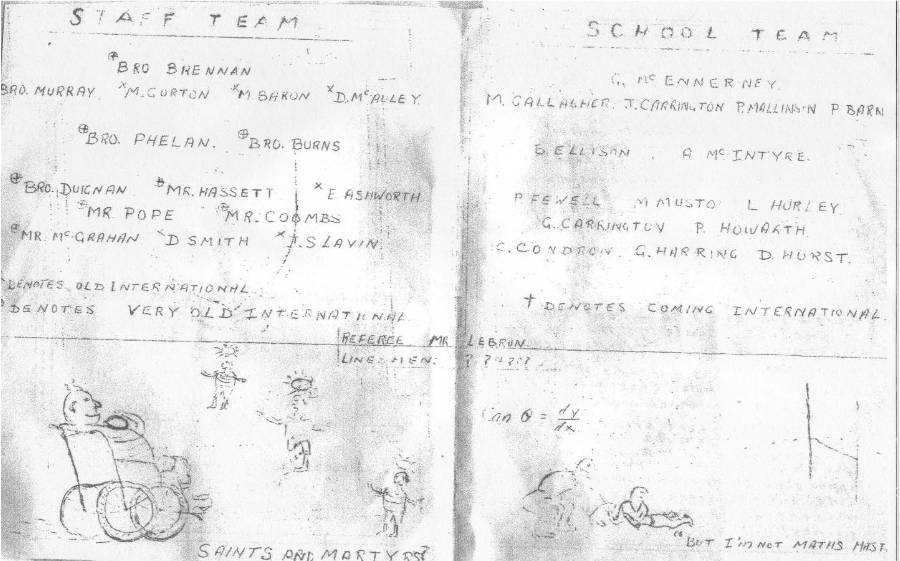 STAFF TEAM
⊕BRO BRENNAN
BRO. MURRAY. ×M. GORTON ×M. BARON ×D. McALLEY.
⊕BRO. PHELAN. ⊕BRO. BURNS
⊕BRO. DUIGNAN MR. HASSETT ×E ASHWORTH
⊕MR. POPE ⊕MR. COOMBS
⊕MR. McGRAHAN ×D SMITH ×J. SLAVIN.
DENOTES OLD INTERNATIONAL
DENOTES VERY OLD INTERNATIONAL
SCHOOL TEAM
G. McENNERNEY.
M. GALLAGHER. J. CARRINGTON P. MALLINSON P BARN
B ELLISON. A McINTYRE.
P FEWELL M MUSTO L HURLEY.
G. CARRINGTON P. HOWARTH.
C. CONDRON. G. HARRING D. HURST.
† DENOTES COMING INTERNATIONAL.
REFEREE MR LEBRUN
LINESMEN: ? ? ? ? ? ?
SAINTS AND MARTYRS?
tan θ = dy/dx
"BUT I'M NOT MATHS MAST.